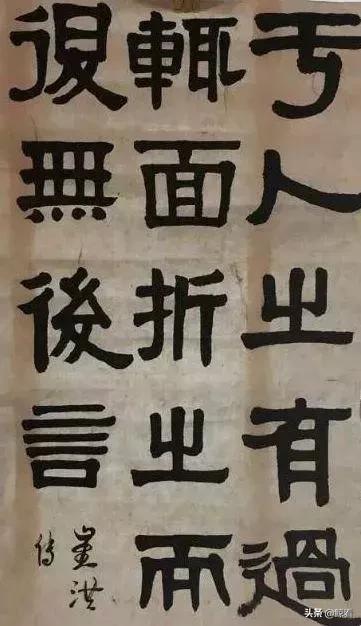 于人之有過
輒面折之而
退無後言
崔洪
傳
头条